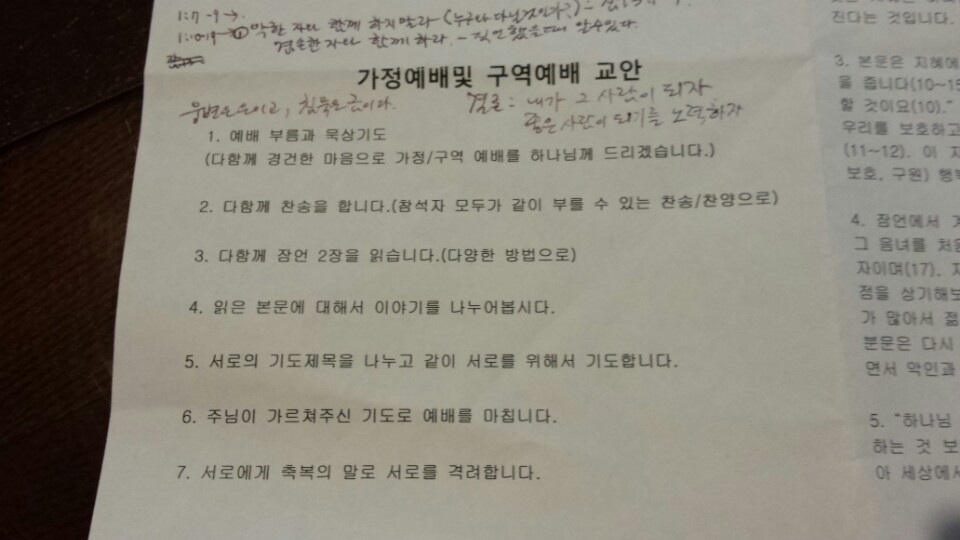 1:7-9→.
악한 자와 함께 하지말라 (누구나 다
겸손한 자와 함께 하라. -
가정예배및 구역예배 교안
웅변은 은이고, 침묵은 금이다.
결론: 내가 그 사람이 되자
좋은사람이 되기를 노력하자
1. 예배 부름과 묵상기도
(다함께 경건한 마음으로 가정/구역 예배를 하나님께 드리겠습니다.)
2. 다함께 찬송을 합니다.(참석자 모두가 같이 부를 수 있는 찬송/찬양으로)
3. 다함께 잠언 2장을 읽습니다.(다양한 방법으로)
4. 읽은 본문에 대해서 이야기를 나누어봅시다.
5. 서로의 기도제목을 나누고 같이 서로를 위해서 기도합니다.
6. 주님이 가르쳐주신 기도로 예배를 마칩니다.
7. 서로에게 축복의 말로 서로를 격려합니다.
진다는 것입니다.
3. 본문은 지혜에
을 줍니다(10~15
할 것이요(10)."
우리를 보호하고
(11~12). 이 지
보호, 구원) 행복
4. 잠언에서
그 음녀를 처음
자이며(17), 지
점을 상기해보
가 많아서 젊
분문은 다시
면서 악인과
5. "하나님
하는 것 보
아 세상에서